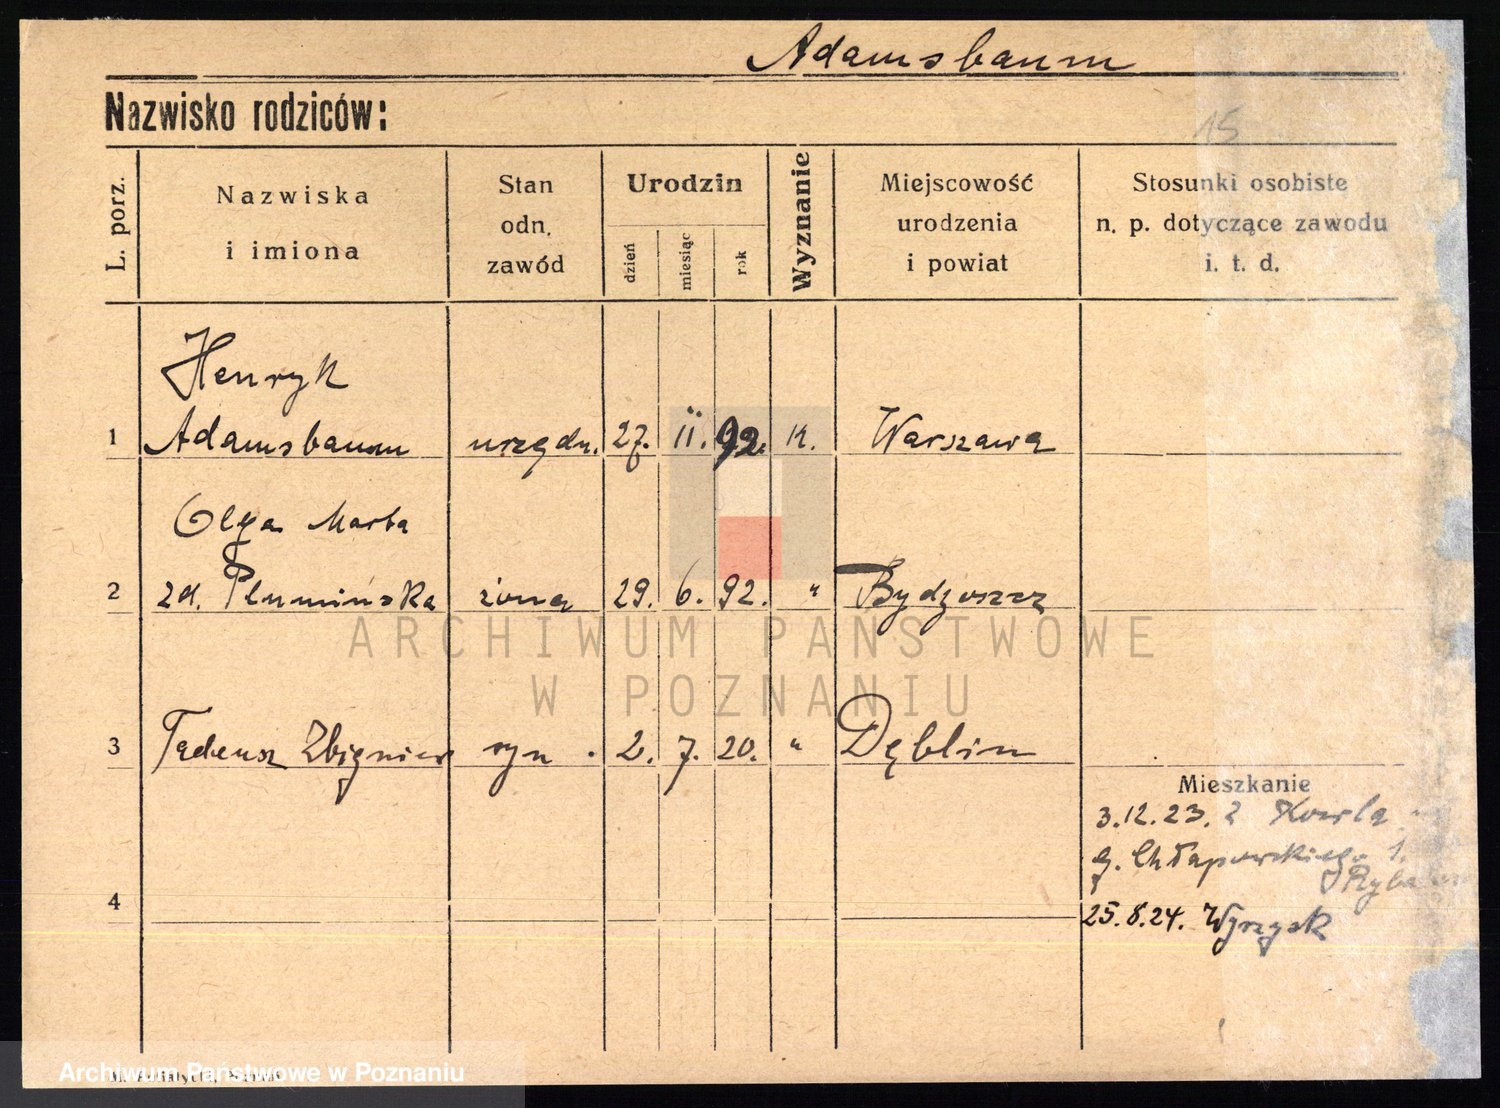 Adamsbaum
Nazwisko rodziców:
15
L. porz.
Nazwiska
i imiona
Stan
odn.
zawód
Urodzin
dzień
miesiąc
rok
Wyznanie
Miejscowość
urodzenia
i powiat
Stosunki osobiste
n. p. dotyczące zawodu
i. t. d.
Henryk
1 Adamsbaum urzędn. 27. II. 92. k. Warszawa
Olga Marta
2 zd. Plumińska żona 29. 6. 92. " Bydgoszcz
ARCHIWUM PAŃSTWOWE
W POZNANIU
3 Tadeusz Zbigniew syn . 2. 7. 20. " Dęblin
Mieszkanie
3.12.23. z
g. Chłapowskiego 1.
4
25.8.24. Wyrzysk
Archiwum Państwowe w Poznaniu